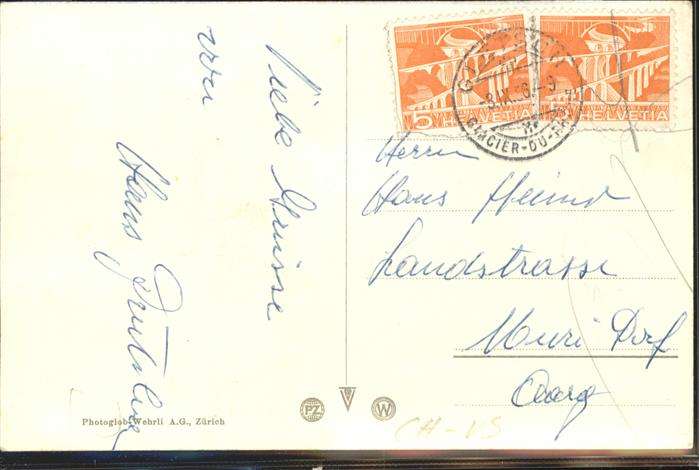 Liebe Grüsse
von
Hans
5
HELVETIA
HELVETIA
GLETSCH
3.IX.
GLACIER-DU-RHÔNE
Herrn
Hans
Landstrasse
Muri Dorf
Aarg
Photoglob-Wehrli A.G., Zürich
PZ
W
CH-VS